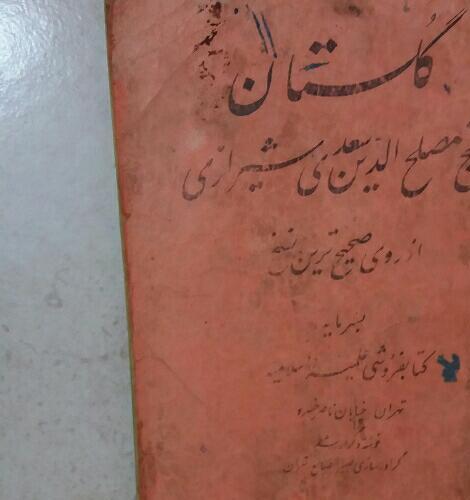 گلستان
مصلح الدین سعدی شیرازی
از روی صحیح ترین نسخ
بسرمایه
کتابفروشی علمیه اسلامیه
تهران خیابان ناصر خسرو
تهران